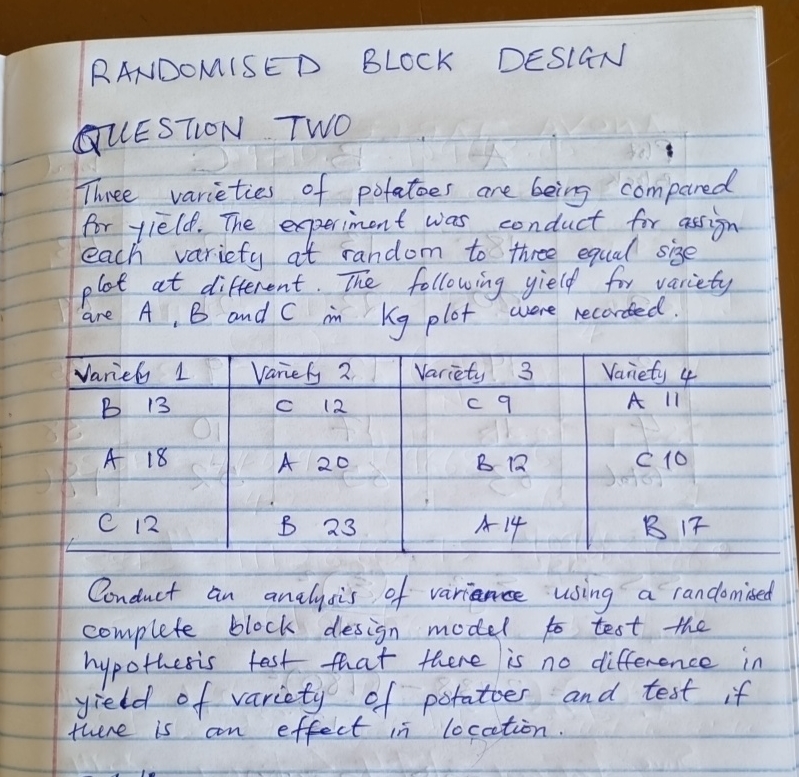 RANDOMISED BLOCK DESIGN
QUESTION TWO
Three varieties of potatoes are being compared
for yield. The experiment was conduct for assign
each variety at random to three equal size
plot at different. The following yield for variety
are A, B and C in Kg plot were recorded.
Variety 1 Variety 2 Variety 3 Variety 4
B 13 C 12 C 9 A 11
A 18 A 20 B 12 C 10
C 12 B 23 A 14 B 17
Conduct an analysis of variance using a randomised
complete block design model to test the
hypothesis test that there is no difference in
yield of variety of potatoes and test if
there is an effect in location.